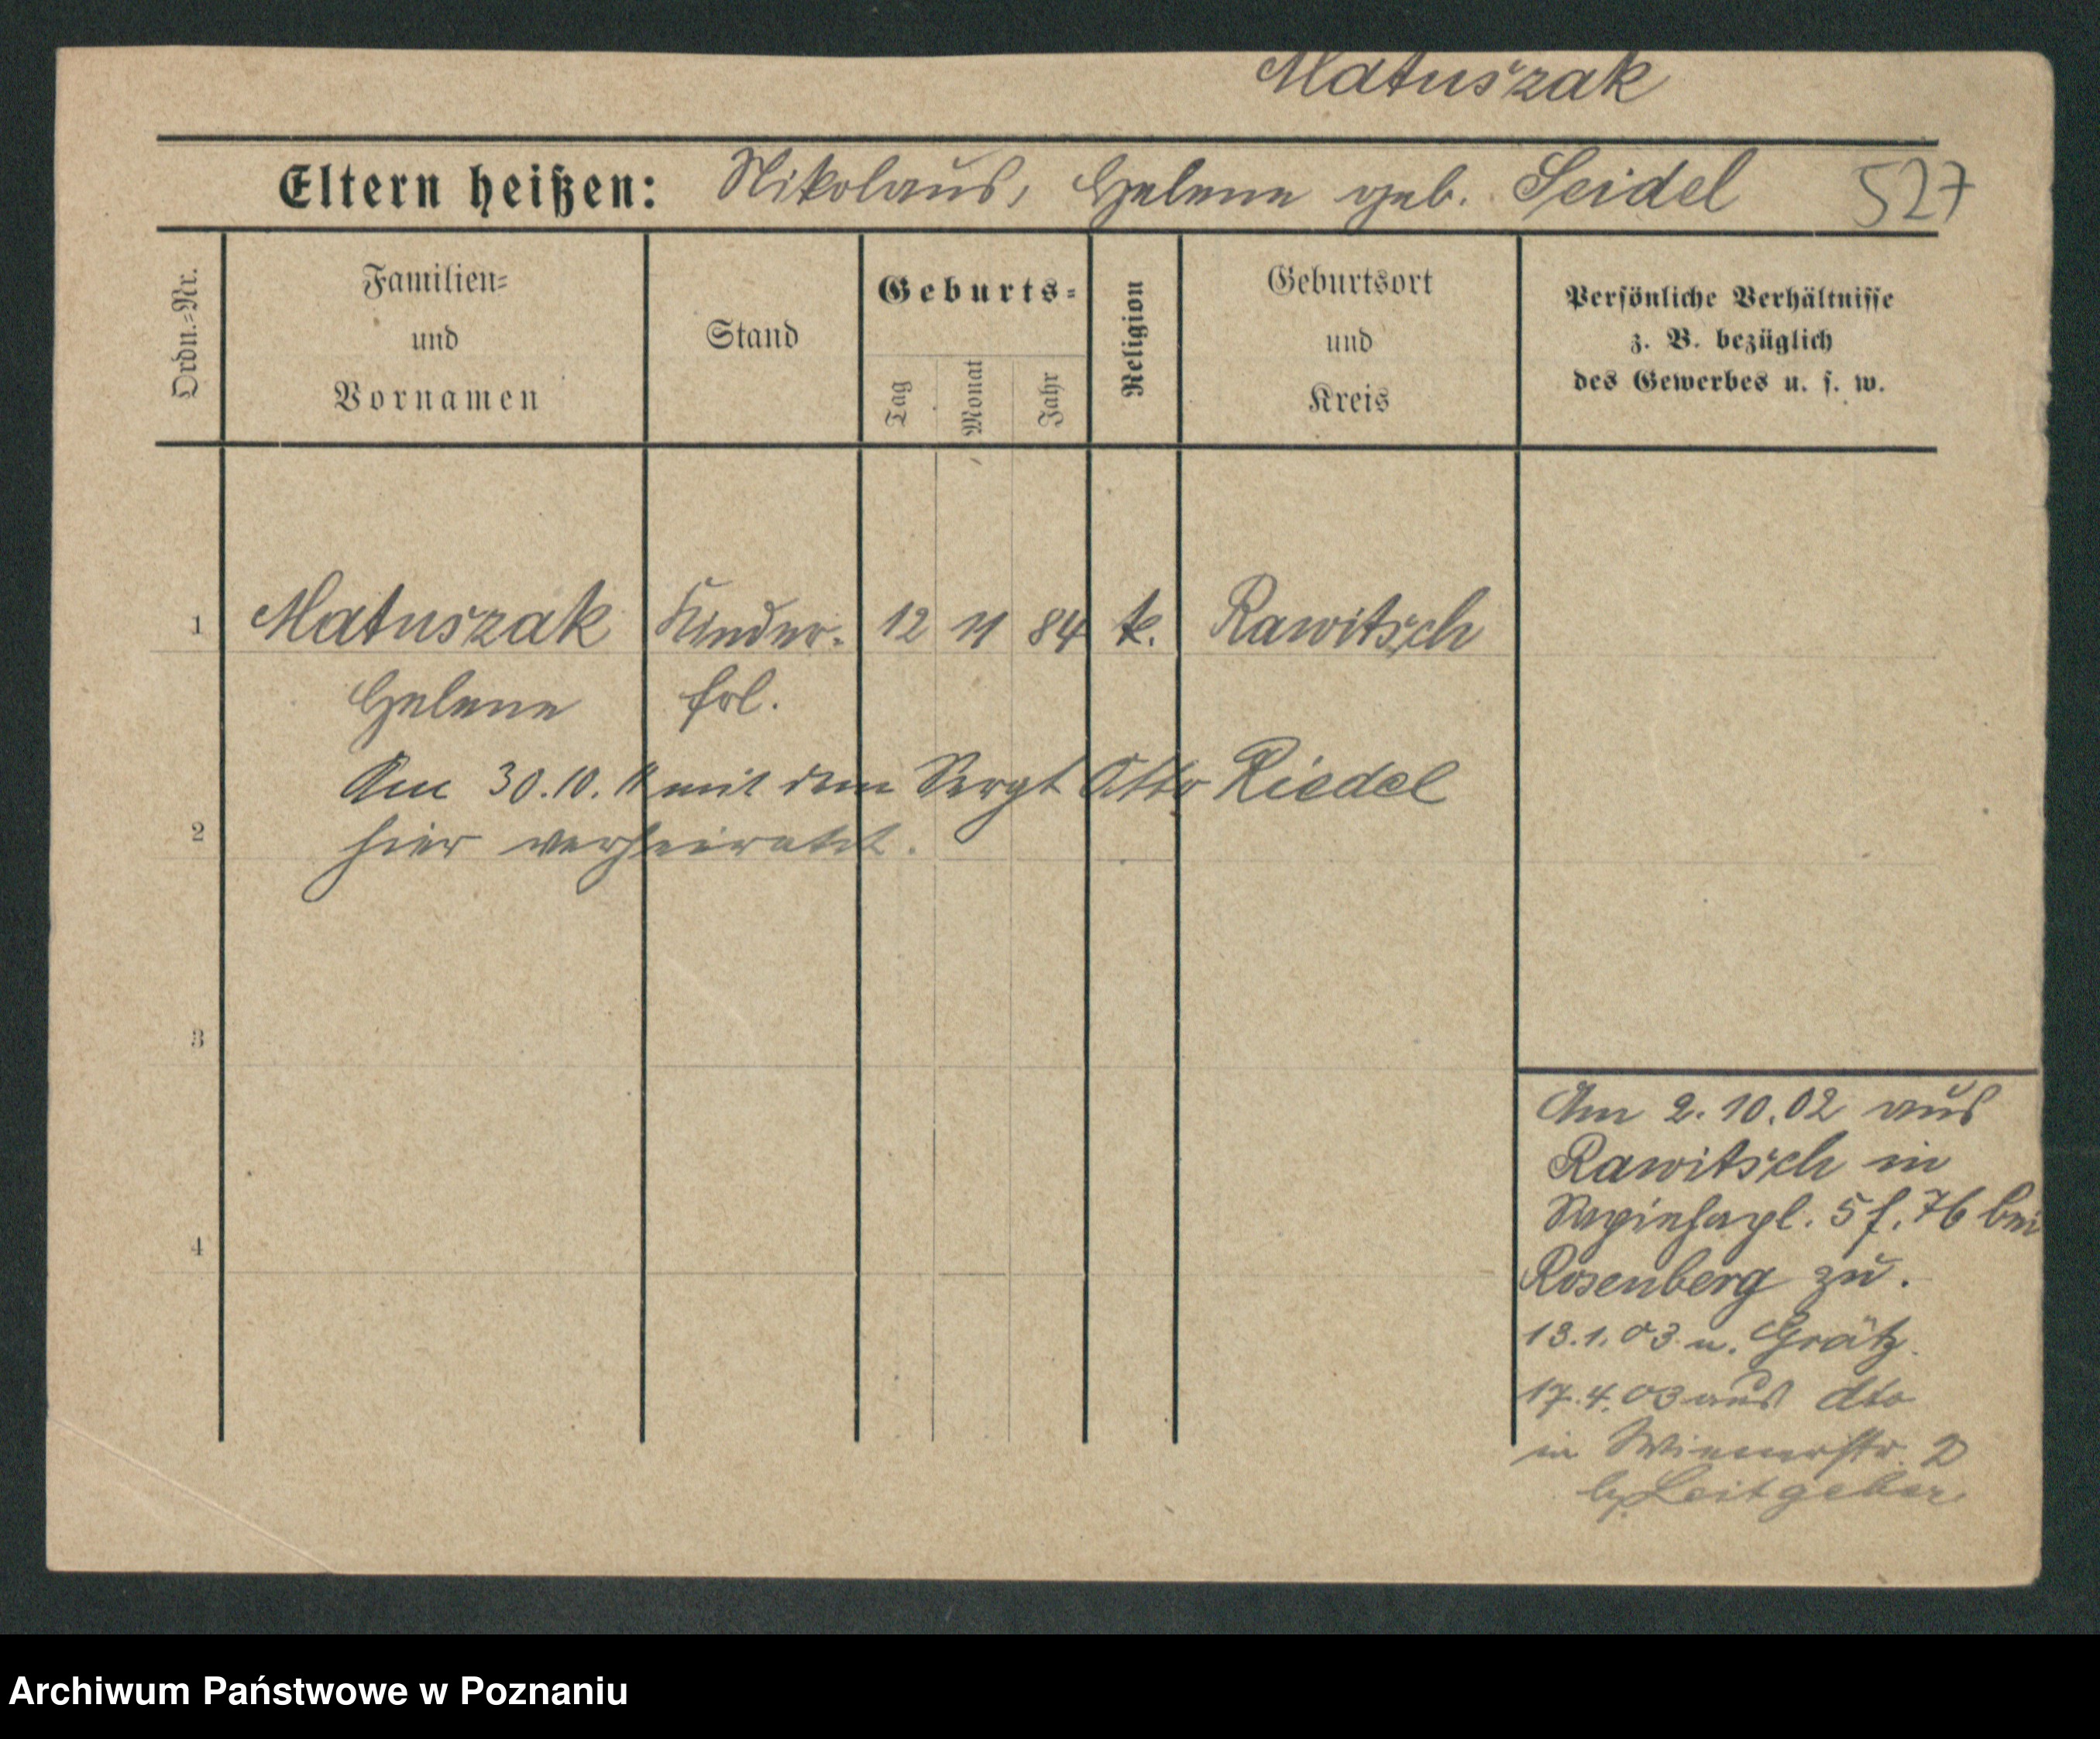 Matuszak
Eltern heißen: Nikolaus, Helene geb. Seidel 527
Ordn.-Nr.
Familien-
und
Vornamen
Stand
Geburts-
Tag
Monat
Jahr
Religion
Geburtsort
und
Kreis
Persönliche Verhältnisse
z. B. bezüglich
des Gewerbes u. s. w.
1 Matuszak Kinder- 12 11 84 k. Rawitsch
Helene frl.
Am 30.10.11 mit dem Sergt Otto Riedel
2 hier verheiratet.
3
4
Am 2.10.02 aus
Rawitsch in
5 f. 76 bei
Rosenberg zu.
13.1.03 n. Grätz.
17.4.03 aus dto
in Wienerstr. 2
b. Leitgeber
Archiwum Państwowe w Poznaniu